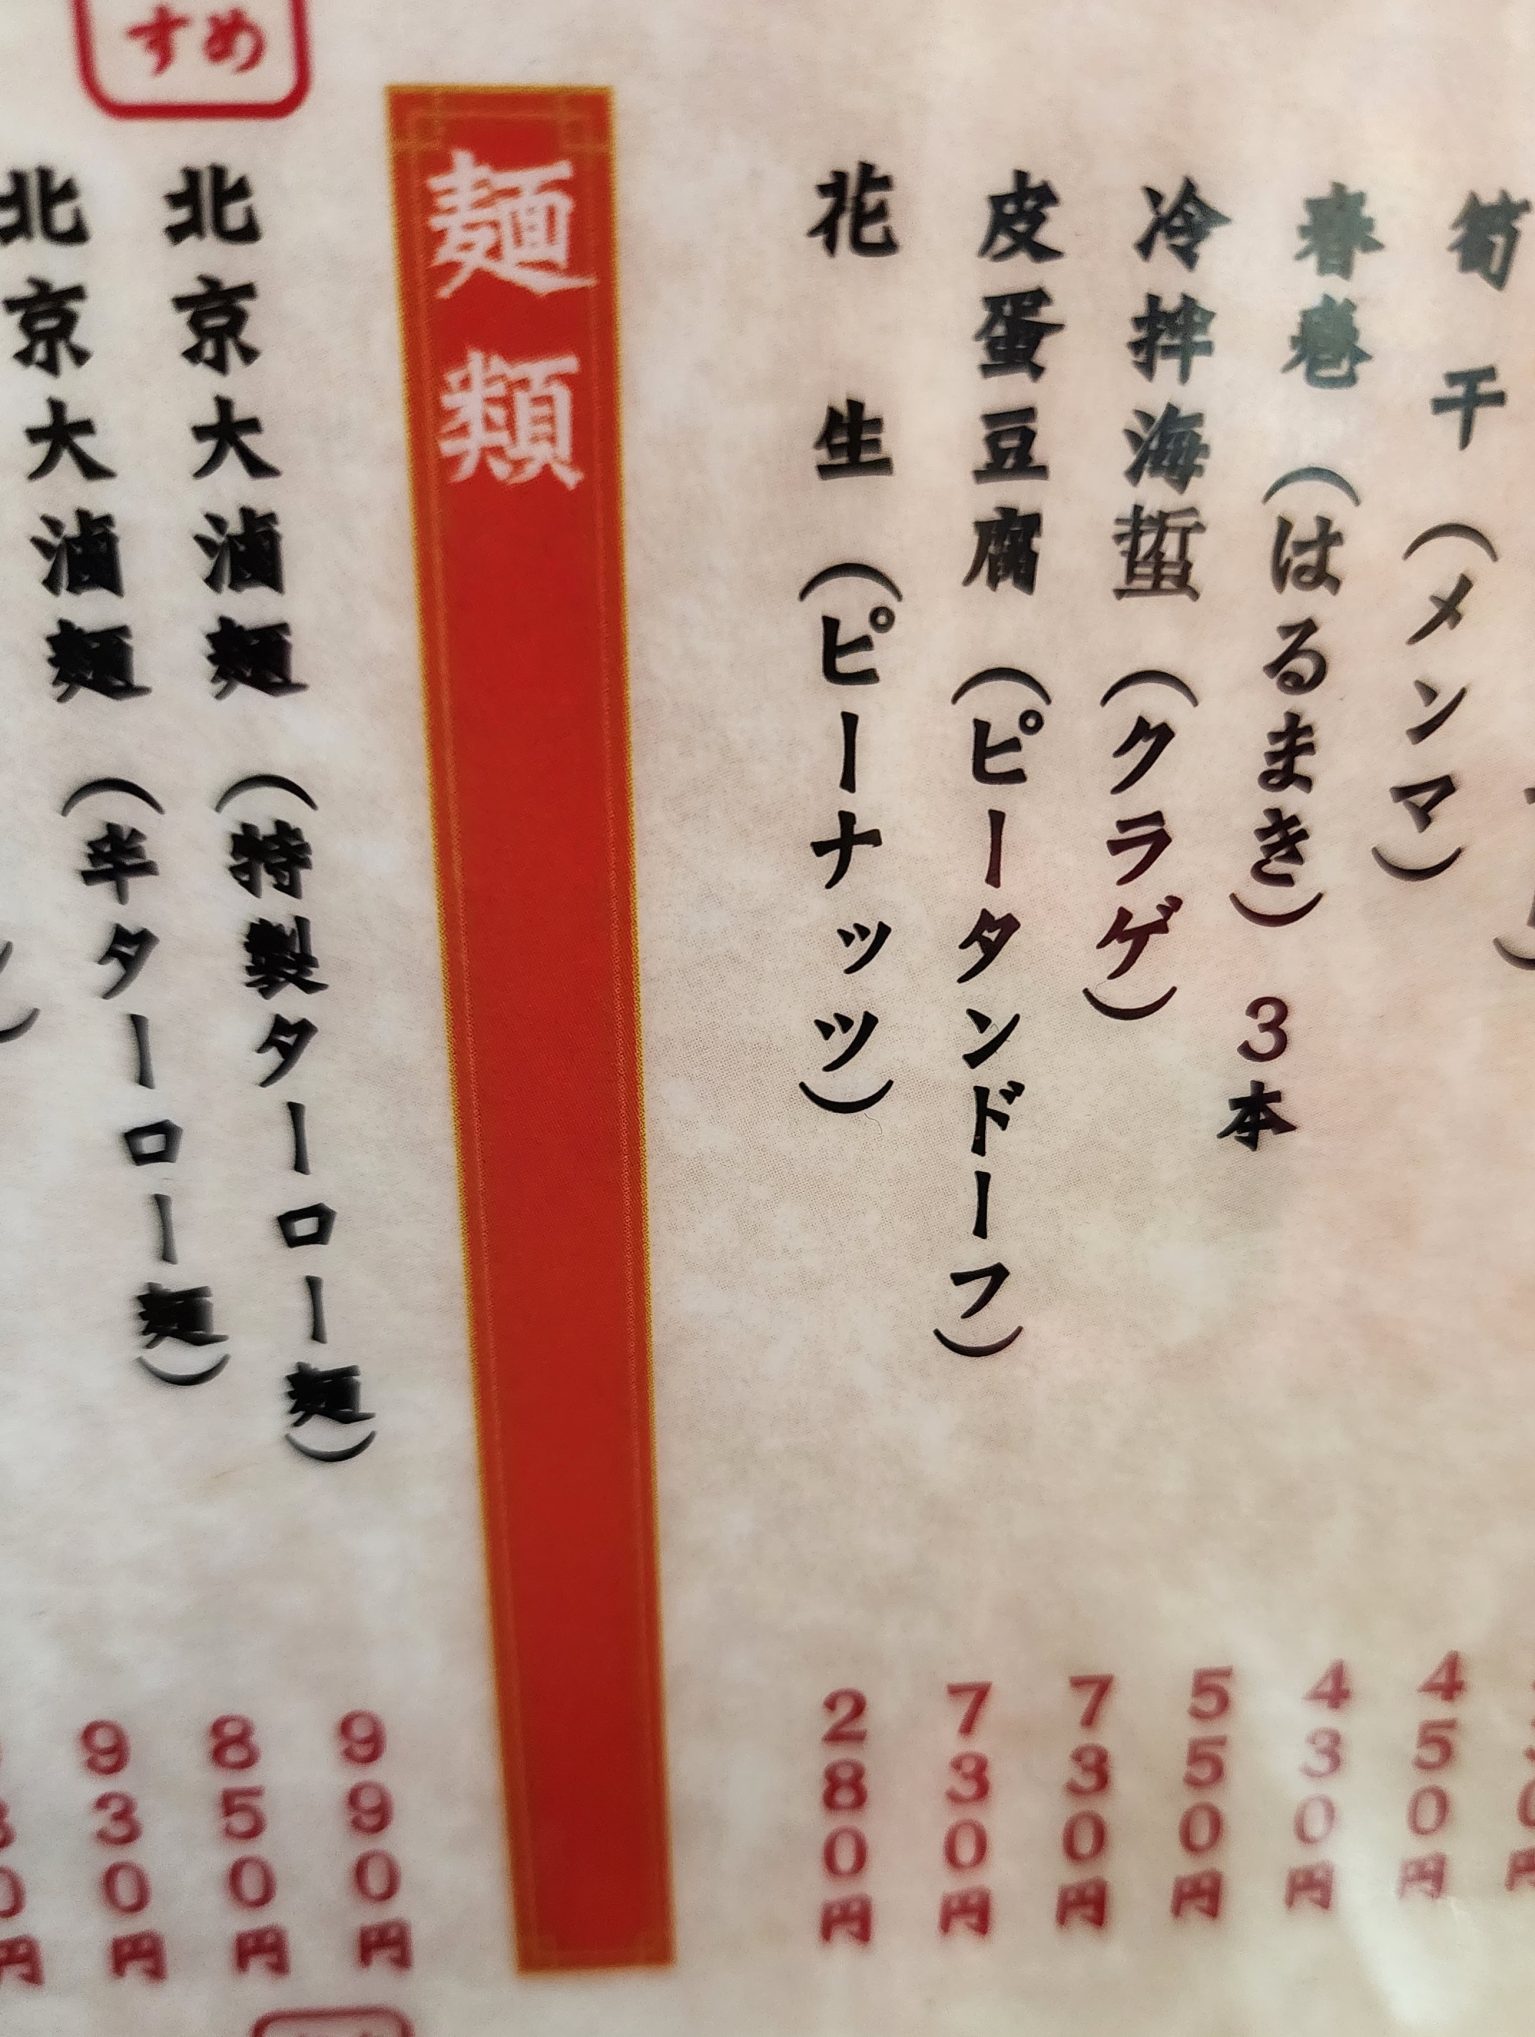 450円
筍干(メンマ) 430円
春巻(はるまき)3本 550円
冷拌海蜇(クラゲ) 730円
皮蛋豆腐(ピータンドーフ) 730円
花生(ピーナッツ) 280円
麺類
すめ
北京大滷麺(特製ターロー麺) 990円
北京大滷麺(半ターロー麺) 850円
930円